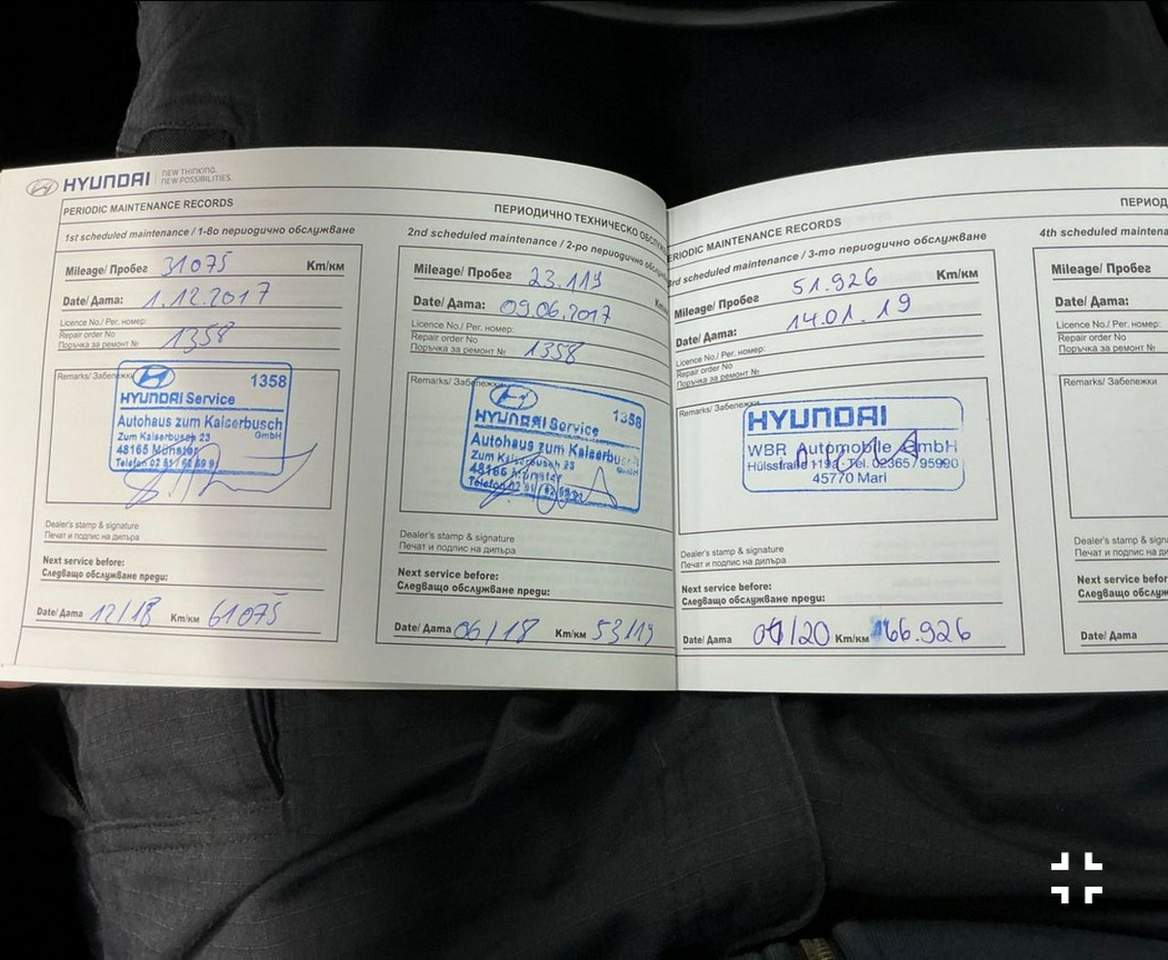 HYUNDAI
NEW THINKING.
NEW POSSIBILITIES.
PERIODIC MAINTENANCE RECORDS
ПЕРИОДИЧНО ТЕХНИЧЕСКО
1st scheduled maintenance / 1-во периодично обслужване
Mileage/ Пробег 31075 Km/км
Date/ Дата: 1.12.2017
Licence No./ Рег. номер:
Repair order No
Поръчка за ремонт № 1358
Remarks/
1358
HYUNDAI Service
Autohaus zum Kaiserbusch
GmbH
Zum Kaiserbusch 23
48165 Münster
Telefon 02 51/
Dealer's stamp & signature
Печат и подпис на дилъра
Next service before:
Следващо обслужване преди:
Date/ Дата 12/18 Km/км 61075
2nd scheduled maintenance / 2-ро периодично
Mileage/ Пробег 23.119
Date/ Дата: 09.06.2017
Licence No./ Рег. номер:
Repair order No
Поръчка за ремонт № 1358
Remarks/
1358
HYUNDAI Service
Autohaus zum
GmbH
Zum Kaiserbusch 23
48165 Münster
Telefon
Dealer's stamp & signature
Печат и подпис на дилъра
Next service before:
Следващо обслужване преди:
Date/ Дата 06/18 Km/км 53119
PERIODIC MAINTENANCE RECORDS
ПЕРИОД
3rd scheduled maintenance / 3-то периодично обслужване
Mileage/ Пробег 51.926 Km/км
Date/ Дата: 14.01.19
Licence No./ Рег. номер:
Repair order No
Поръчка за ремонт №
Remarks/
HYUNDAI
WBR Automobile GmbH
Hülsstraße Tel. 02365/95990
45770 Marl
Dealer's stamp & signature
Печат и подпис на дилъра
Next service before:
Следващо обслужване преди:
Date/ Дата 01/20 Km/км 66.926
4th scheduled
Mileage/ Пробег
Date/ Дата:
Licence No./ Рег. номер:
Repair order No
Поръчка за ремонт №
Remarks/ Забележки
Dealer's stamp &
Печат и подпис на
Next service before:
Следващо
Date/ Дата